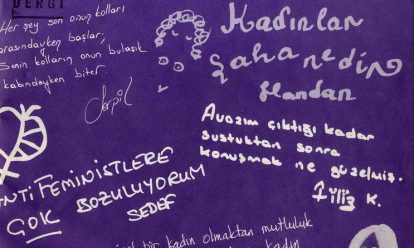 DERGİ
Her şey sen onun kolları
arasındayken başlar,
Senin kolların onun bulaşık
kabındayken biter
Serpil
Kadınlar
şahanedir
Handan
Avazım çıktığı kadar
sustuktan sonra
konuşmak ne güzelmiş.
Filiz K.
ANTİ FEMİNİSTLERE
ÇOK BOZULUYORUM
SEDEF
bir kadın olmaktan mutluluk
kadın